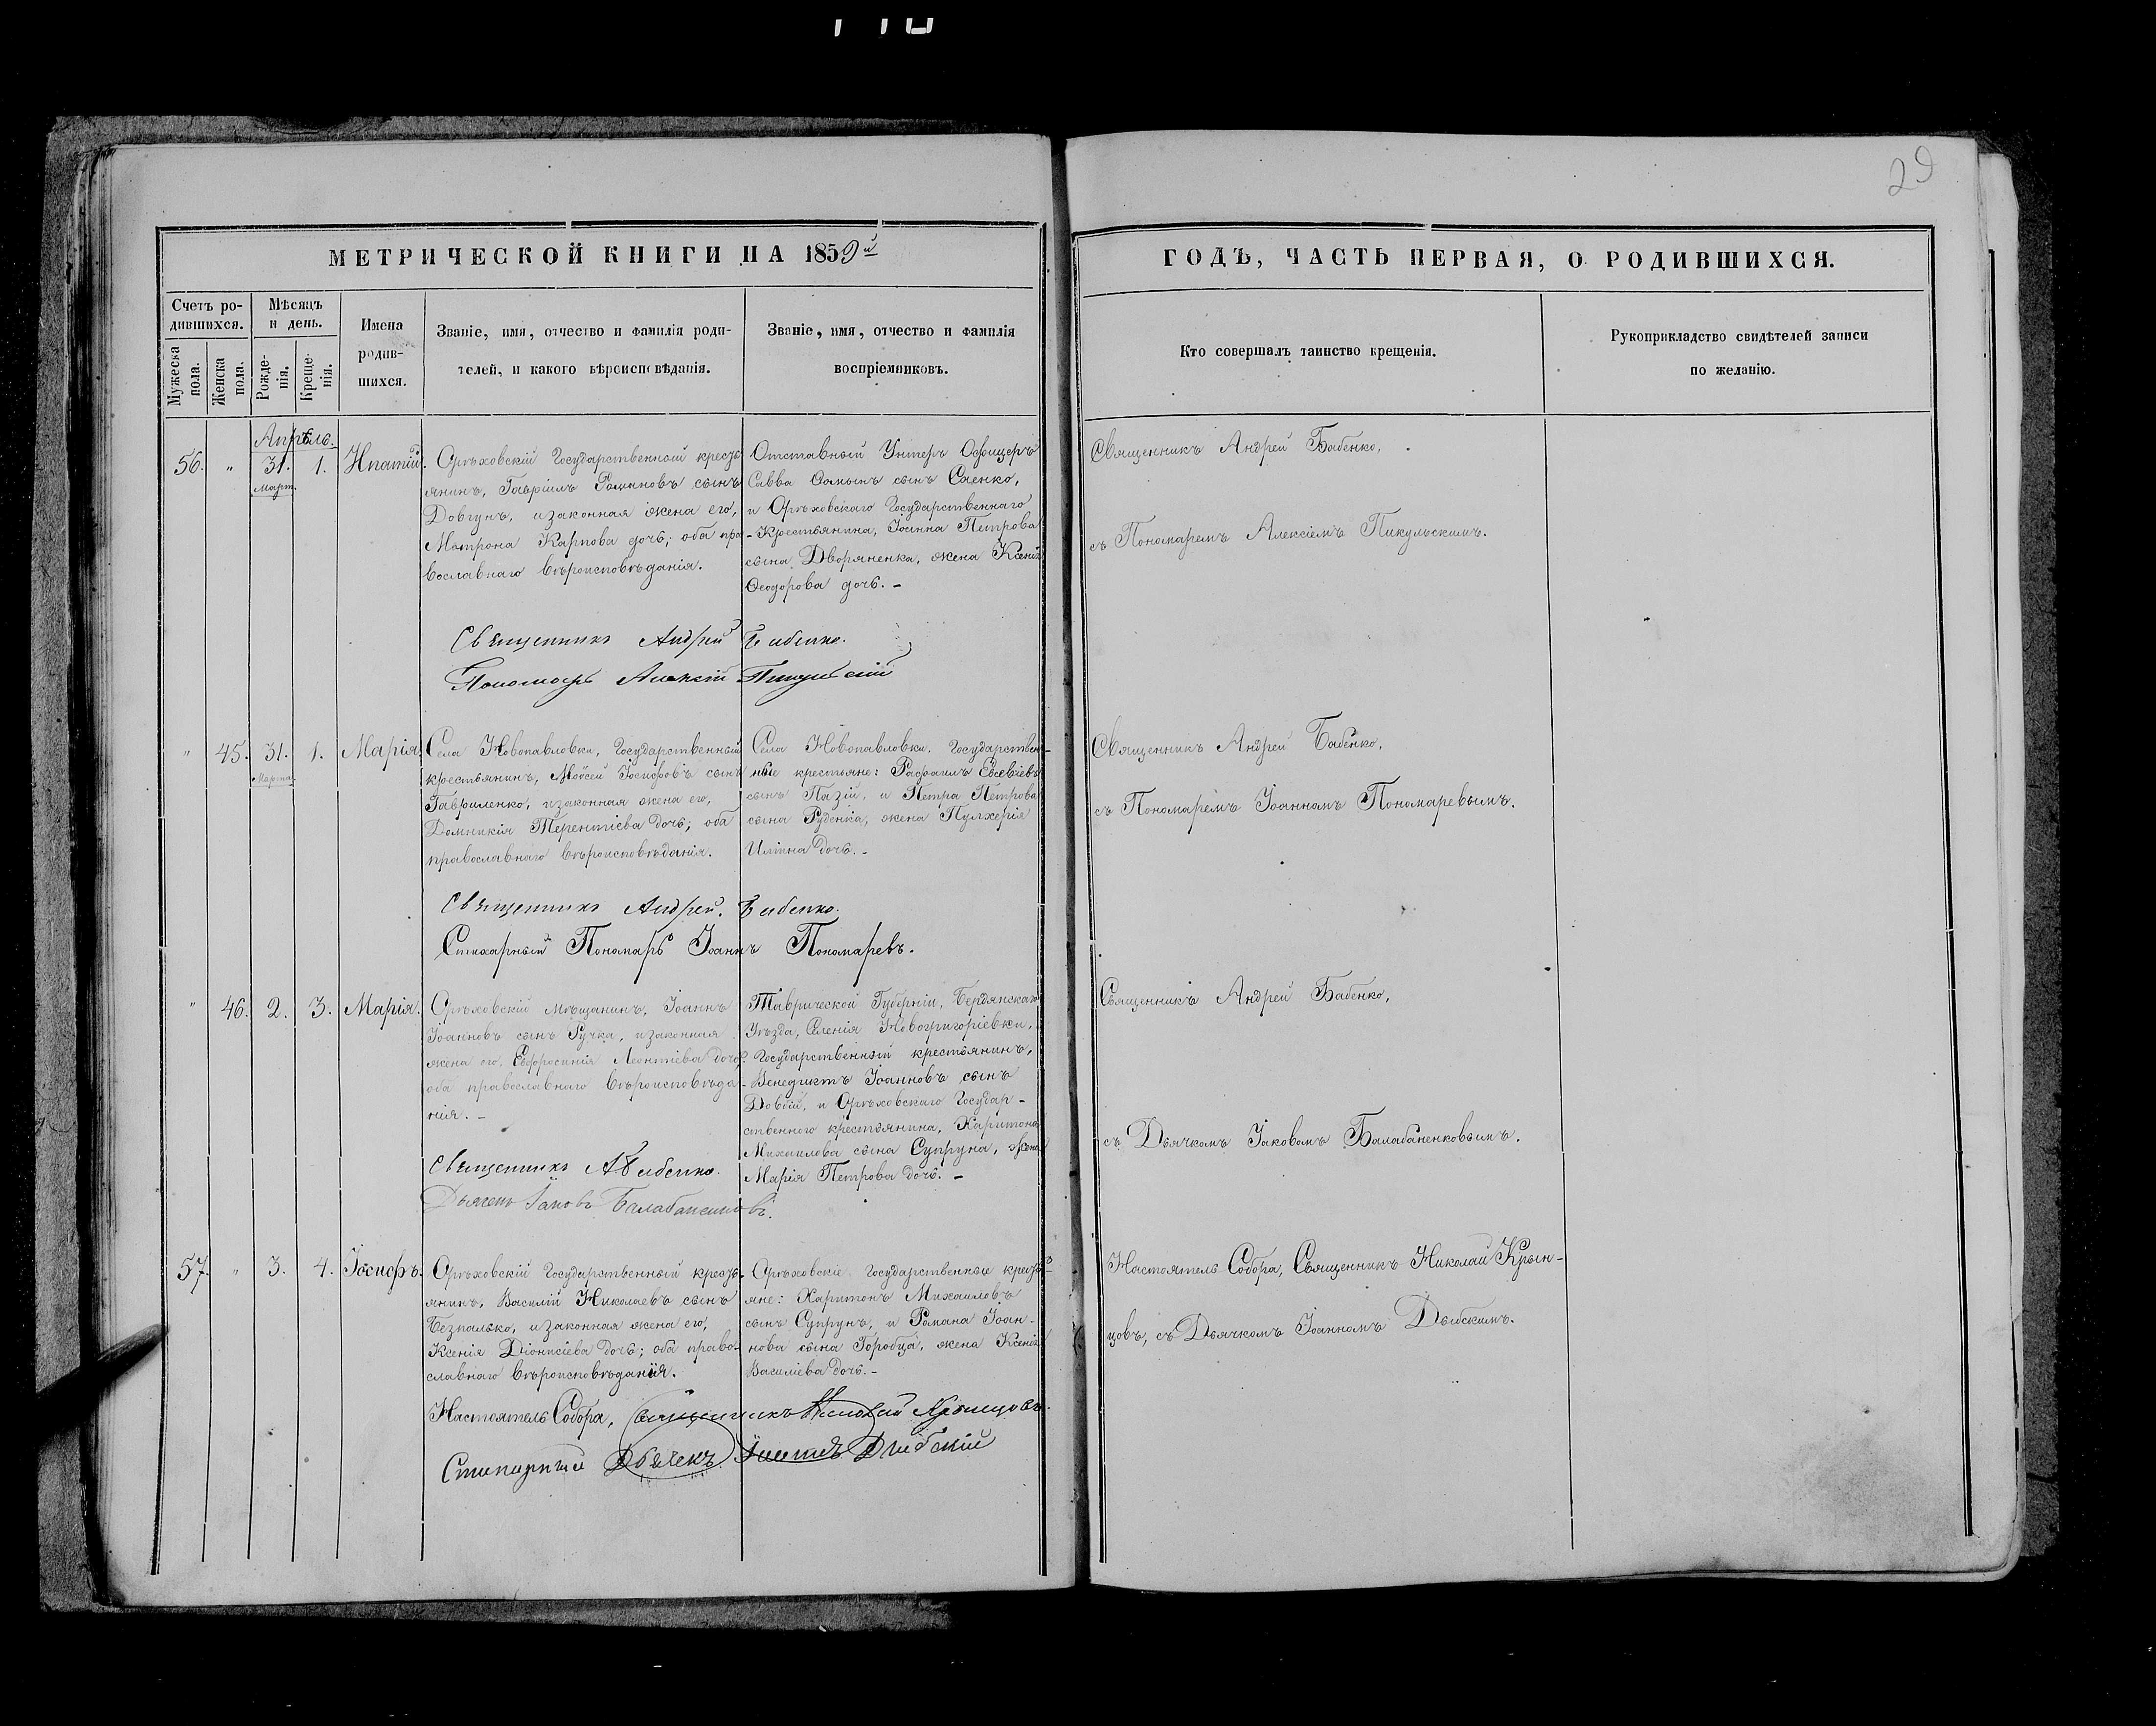 29
МЕТРИЧЕСКОЙ КНИГИ НА 1859й
Счетъ ро-
дившихся.
Мужеска
пола.
Женска
пола.
Мѣсяцъ
и день.
Рожде-
нія.
Креще-
нія.
Имена
родив-
шихся.
Званіе, имя, отчество и фамилія роди-
телей, и какого вѣроисповѣданія.
Званіе, имя, отчество и фамилія
воспріемниковъ.
ГОДЪ, ЧАСТЬ ПЕРВАЯ, О РОДИВШИХСЯ.
Кто совершалъ таинство крещенія.
Рукоприкладство свидѣтелей записи
по желанію.
Апрѣль.
56. " 31. 1. Ипатій.
Март.
Орѣховскій Государственный кресть
янинъ, Гавріилъ сынъ
Довгунъ, и законная жена его,
Матрона Карпова дочь; оба пра-
вославнаго вѣроисповѣданія.
Отставный Унтеръ Офицеръ
Савва сынъ Саенко,
и Орѣховскаго Государственнаго
Крестьянина, Іоанна Петрова
сына Дворяненка, жена Ксенія
Ѳеодорова дочь. -
Священникъ Андрей Бабенко,
съ Пономаремъ Алексіемъ Пикульскимъ.
Священникъ Андрей Бабенко.
Пономарь Алексій Пикульскій
" 45. 31. 1. Марія.
Марта.
Села Новопавловки, Государственный
крестьянинъ, Мойсей Іосифовъ сынъ
Гавриленко, и законная жена его,
Домникія Терентіева дочь; оба
православнаго вѣроисповѣданія.
Села Новопавловки, Государствен-
ные крестьяне: Рафаилъ Евсевіевъ
сынъ Пазій, и Петра Петрова
сына Руденка, жена Пулхерія
Иліина дочь. -
Священникъ Андрей Бабенко,
съ Пономаремъ Іоанномъ Пономаревымъ.
Священникъ Андрей Бабенко.
Стихарный Пономарь Іоаннъ Пономаревъ.
" 46. 2. 3. Марія.
Орѣховскій мѣщанинъ, Іоаннъ
Іоанновъ сынъ Ручка, и законная
жена его, Евфросинія Леонтіева дочь;
оба православнаго вѣроисповѣда-
нія. -
Таврической Губерніи, Бердянскаго
Уѣзда, Селенія Новогригоріевки,
Государственный крестьянинъ,
Венедиктъ Іоанновъ сынъ
Довбій, и Орѣховскаго Государ-
ственного крестьянина, Харитона
Михаилова сына Супруна, жена
Марія Петрова дочь. -
Священникъ Андрей Бабенко,
съ Дьячкомъ Іаковомъ Балабаненковымъ.
Священникъ А Бабенко.
Дьячекъ Іаковъ Балабаненковъ.
57. " 3. 4. Іосифъ.
Орѣховскій Государственный кресть-
янинъ, Василій Николаевъ сынъ
Безпалько, и законная жена его,
Ксенія Діонисіева дочь; оба право-
славнаго вѣроисповѣданія.
Орѣховскіе Государственные кресть-
яне: Харитонъ Михаиловъ
сынъ Супрунъ, и Романа Іоан-
нова сына Горобца, жена Ксенія
Василіева дочь. -
Настоятель Собора, Священникъ Николай Крын-
цовъ, съ Дьячкомъ Іоанномъ
Настоятель Собора, Священникъ Николай
Стихарный Дьячекъ Іоаннъ